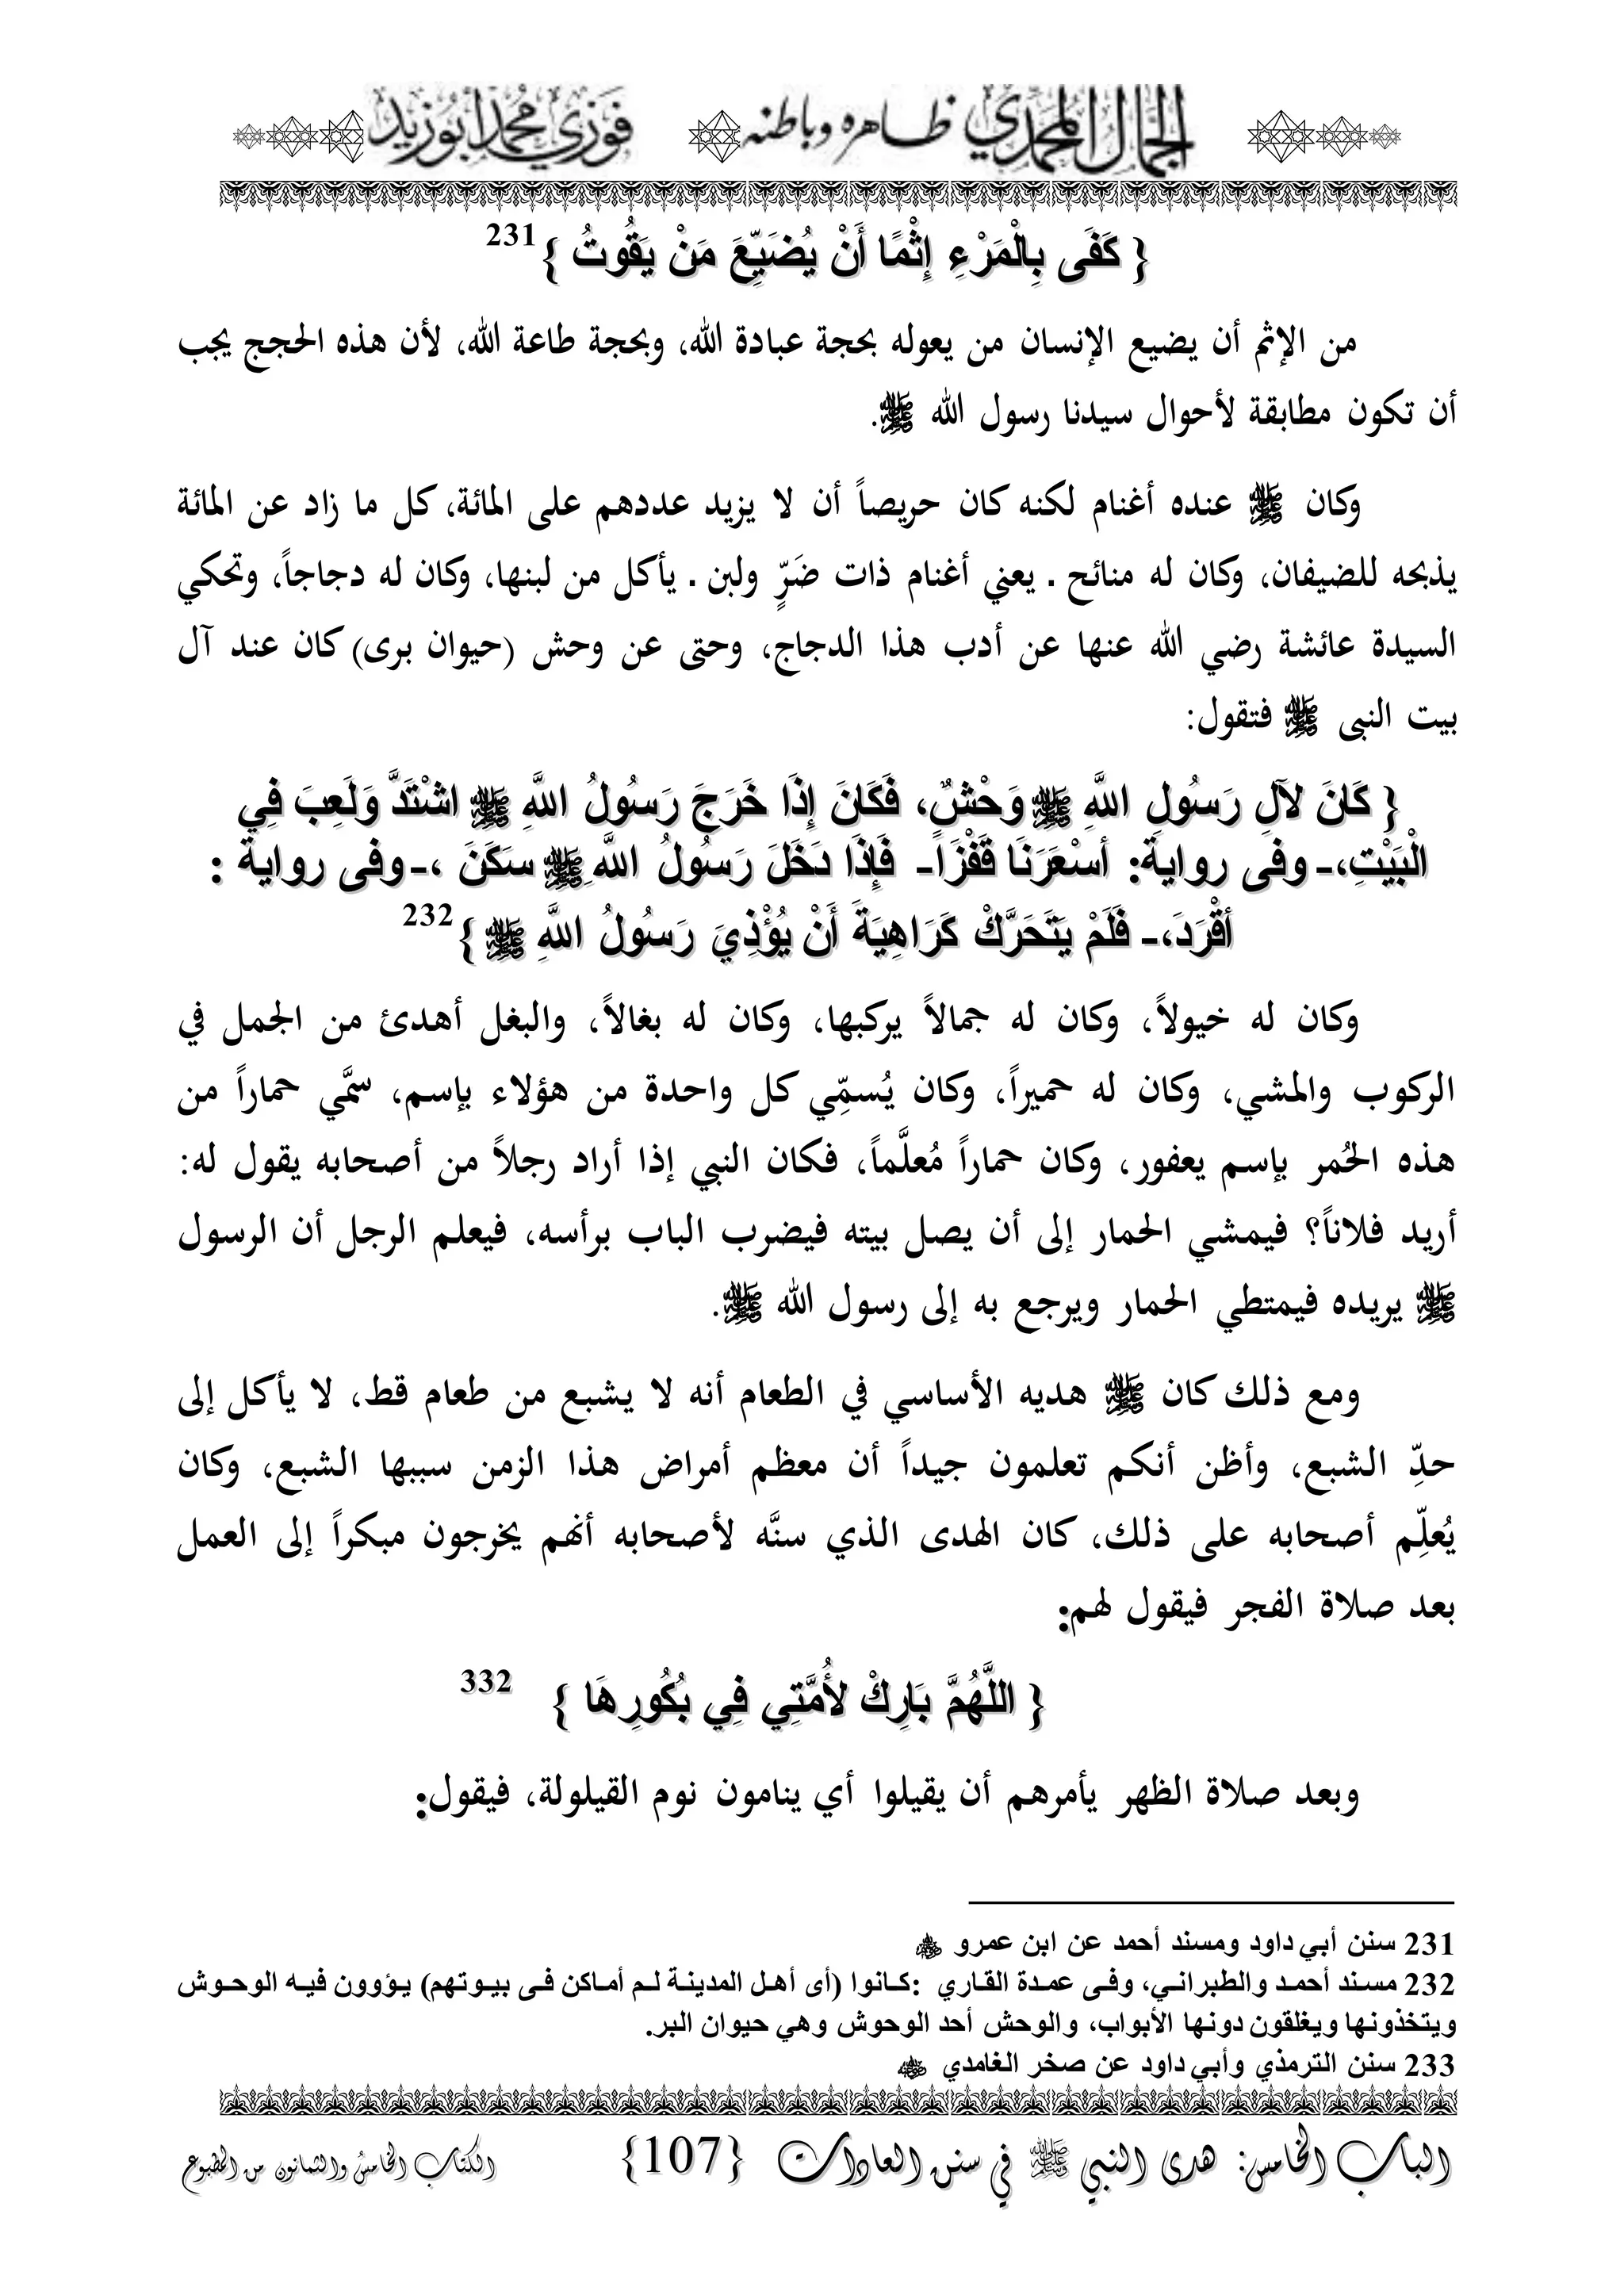 الجمال المحمدي ظاهره وباطنه فوزي محمد أبوزيد
{ كَفَى بِالْمَرْءِ إِثْمًا أَنْ يُضَيِّعَ مَنْ يَقُوتُ }231
من الإثم أن يضيع الإنسان من يعوله بحجة عبادة الله، وبحجة طاعة الله، لأن هذه الحجج يجب
أن تكون مطابقة لأحوال سيدنا رسول الله ﷺ.
وكان ﷺ عنده أغنام لكنه كان حريصاً أن لا يزيد عددهم على المائة، كل ما زاد عن المائة
يذبحه للضيفان، وكان له منائح . يعني أغنام ذات ضَرٍّ ولبن . يأكل من لبنها، وكان له دجاجاً، وتحكي
السيدة عائشة رضي الله عنها عن أدب هذا الدجاج، وحتى عن وحش (حيوان برى) كان عند آل
بيت النبى ﷺ فتقول:
{ كَانَ لآلِ رَسُولِ اللَّهِ ﷺ وَحْشٌ، فَكَانَ إِذَا خَرَجَ رَسُولُ اللَّهِ ﷺ اشْتَدَّ وَلَعِبَ فِي
الْبَيْتِ،- وفى رواية: أسْعَرَنَا قَفْزَاً- فَإِذَا دَخَلَ رَسُولُ اللَّهِ ﷺ سَكَنَ ،- وفى رواية :
أقْرَدَ،- فَلَمْ يَتَحَرَّكْ كَرَاهِيَةَ أَنْ يُؤْذِيَ رَسُولُ اللَّهِ ﷺ }232
وكان له خيولاً، وكان له جمالاً يركبها، وكان له بغالاً، والبغل أهدئ من الجمل في
الركوب والمشي، وكان له حميراً، وكان يُسمِّي كل واحدة من هؤلاء بإسم، سمَّي حماراً من
هذه الحُمر بإسم يعفور، وكان حماراً مُعلَّماً، فكان النبي إذا أراد رجلاً من أصحابه يقول له:
أريد فلاناً؟ فيمشي الحمار إلى أن يصل بيته فيضرب الباب برأسه، فيعلم الرجل أن الرسول
ﷺ يريده فيمتطي الحمار ويرجع به إلى رسول الله ﷺ.
ومع ذلك كان ﷺ هديه الأساسي في الطعام أنه لا يشبع من طعام قط، لا يأكل إلى
حدِّ الشبع، وأظن أنكم تعلمون جيداً أن معظم أمراض هذا الزمن سببها الشبع، وكان
يُعلِّم أصحابه على ذلك، كان الهدى الذي سنَّه لأصحابه أنهم يخرجون مبكراً إلى العمل
بعد صلاة الفجر فيقول لهم:
{ اللَّهُمَّ بَارِكْ لأُمَّتِي فِي بُكُورِهَا } 332
وبعد صلاة الظهر يأمرهم أن يقيلوا أي ينامون نوم القيلولة، فيقول:
231 سنن أبي داود ومسند أحمد عن ابن عمرو
232 مسند أحمد والطبراني، وفى عمدة القاري :كانوا (أى أهل المدينة لم أماكن فى بيوتهم) يؤوون فيه الوحوش
ويتخذونها ويغلقون دونها الأبواب، والوحش أحد الوحوش وهي حيوان البر.
233 سنن الترمذي وأبي داود عن صخر الغامدي
الباب الخامس: هدى النبي ﷺ في سنن العادات {107} الكتاب الخامس والثمانون من المطبوع